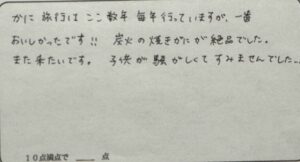 かに旅行はここ数年毎年行っていますが、一番
おいしかったです!! 炭火の焼きがにが絶品でした。
また来たいです。 子供が騒がしくてすみませんでした..
10点満点で ＿＿ 点